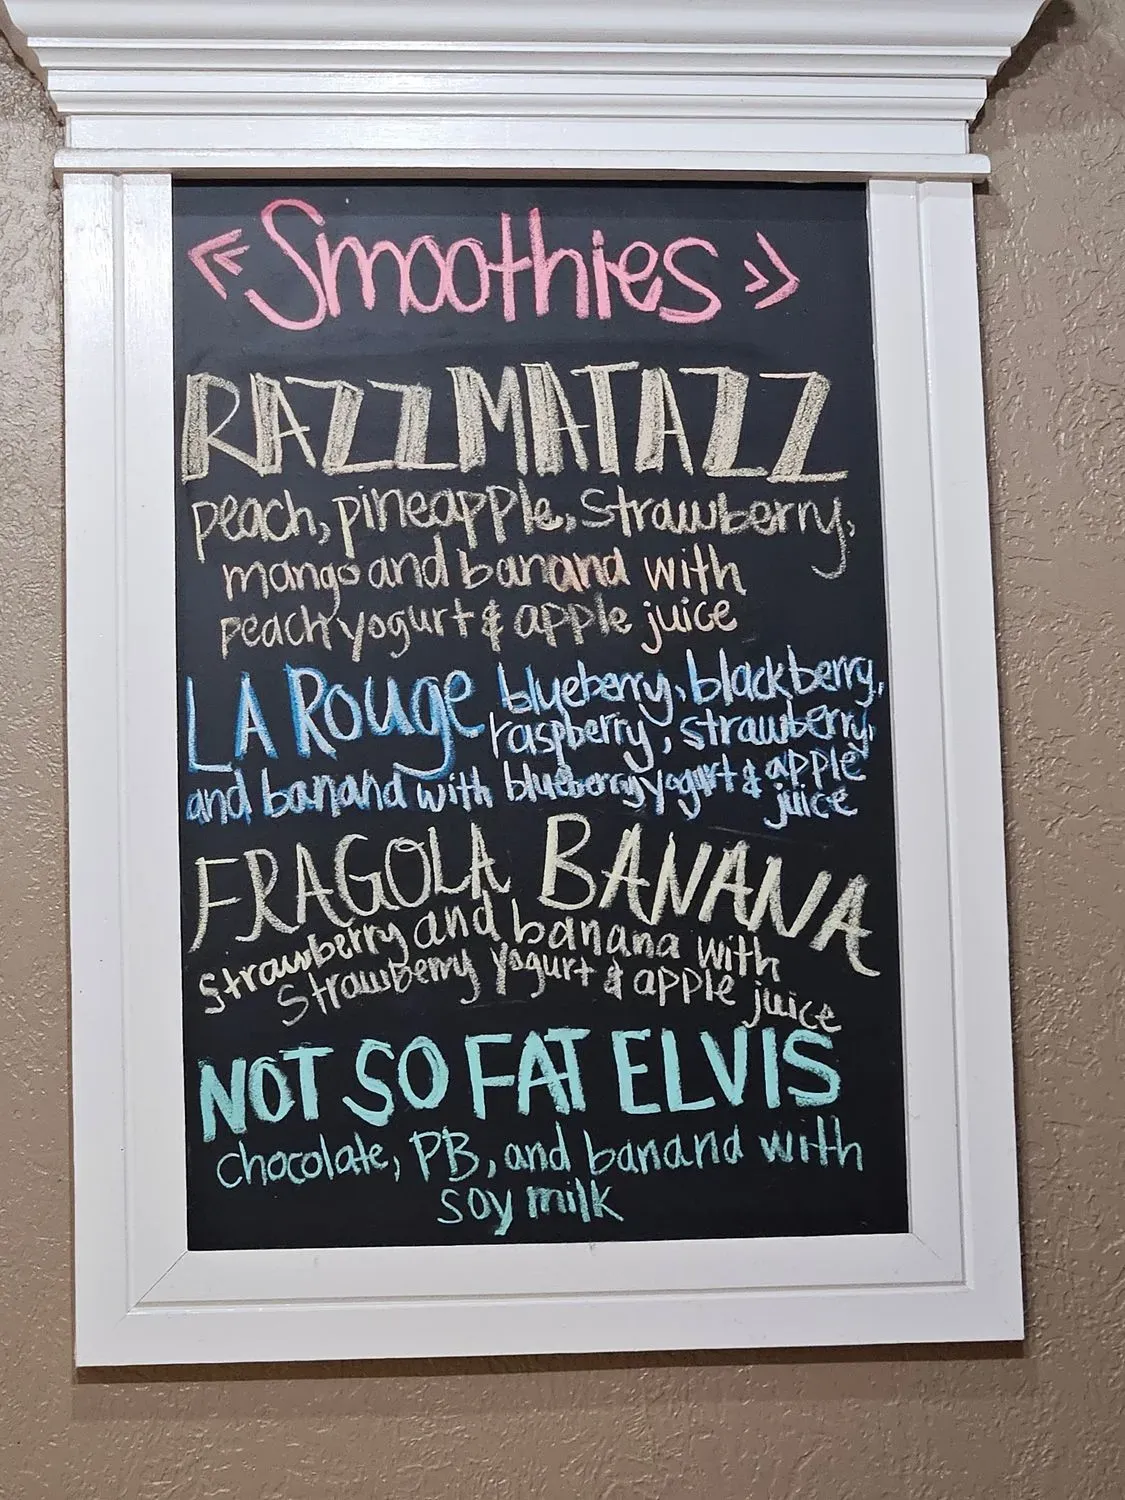 <<Smoothies>>
RAZZMATAZZ
peach, pineapple, strawberry,
mango and banana with
peach yogurt & apple juice
LA ROUGE blueberry, blackberry,
raspberry, strawberry,
and banana with blueberry yogurt & apple
juice
FRAGOLA BANANA
strawberry and banana with
strawberry yogurt & apple juice
NOT SO FAT ELVIS
chocolate, PB, and banana with
soy milk